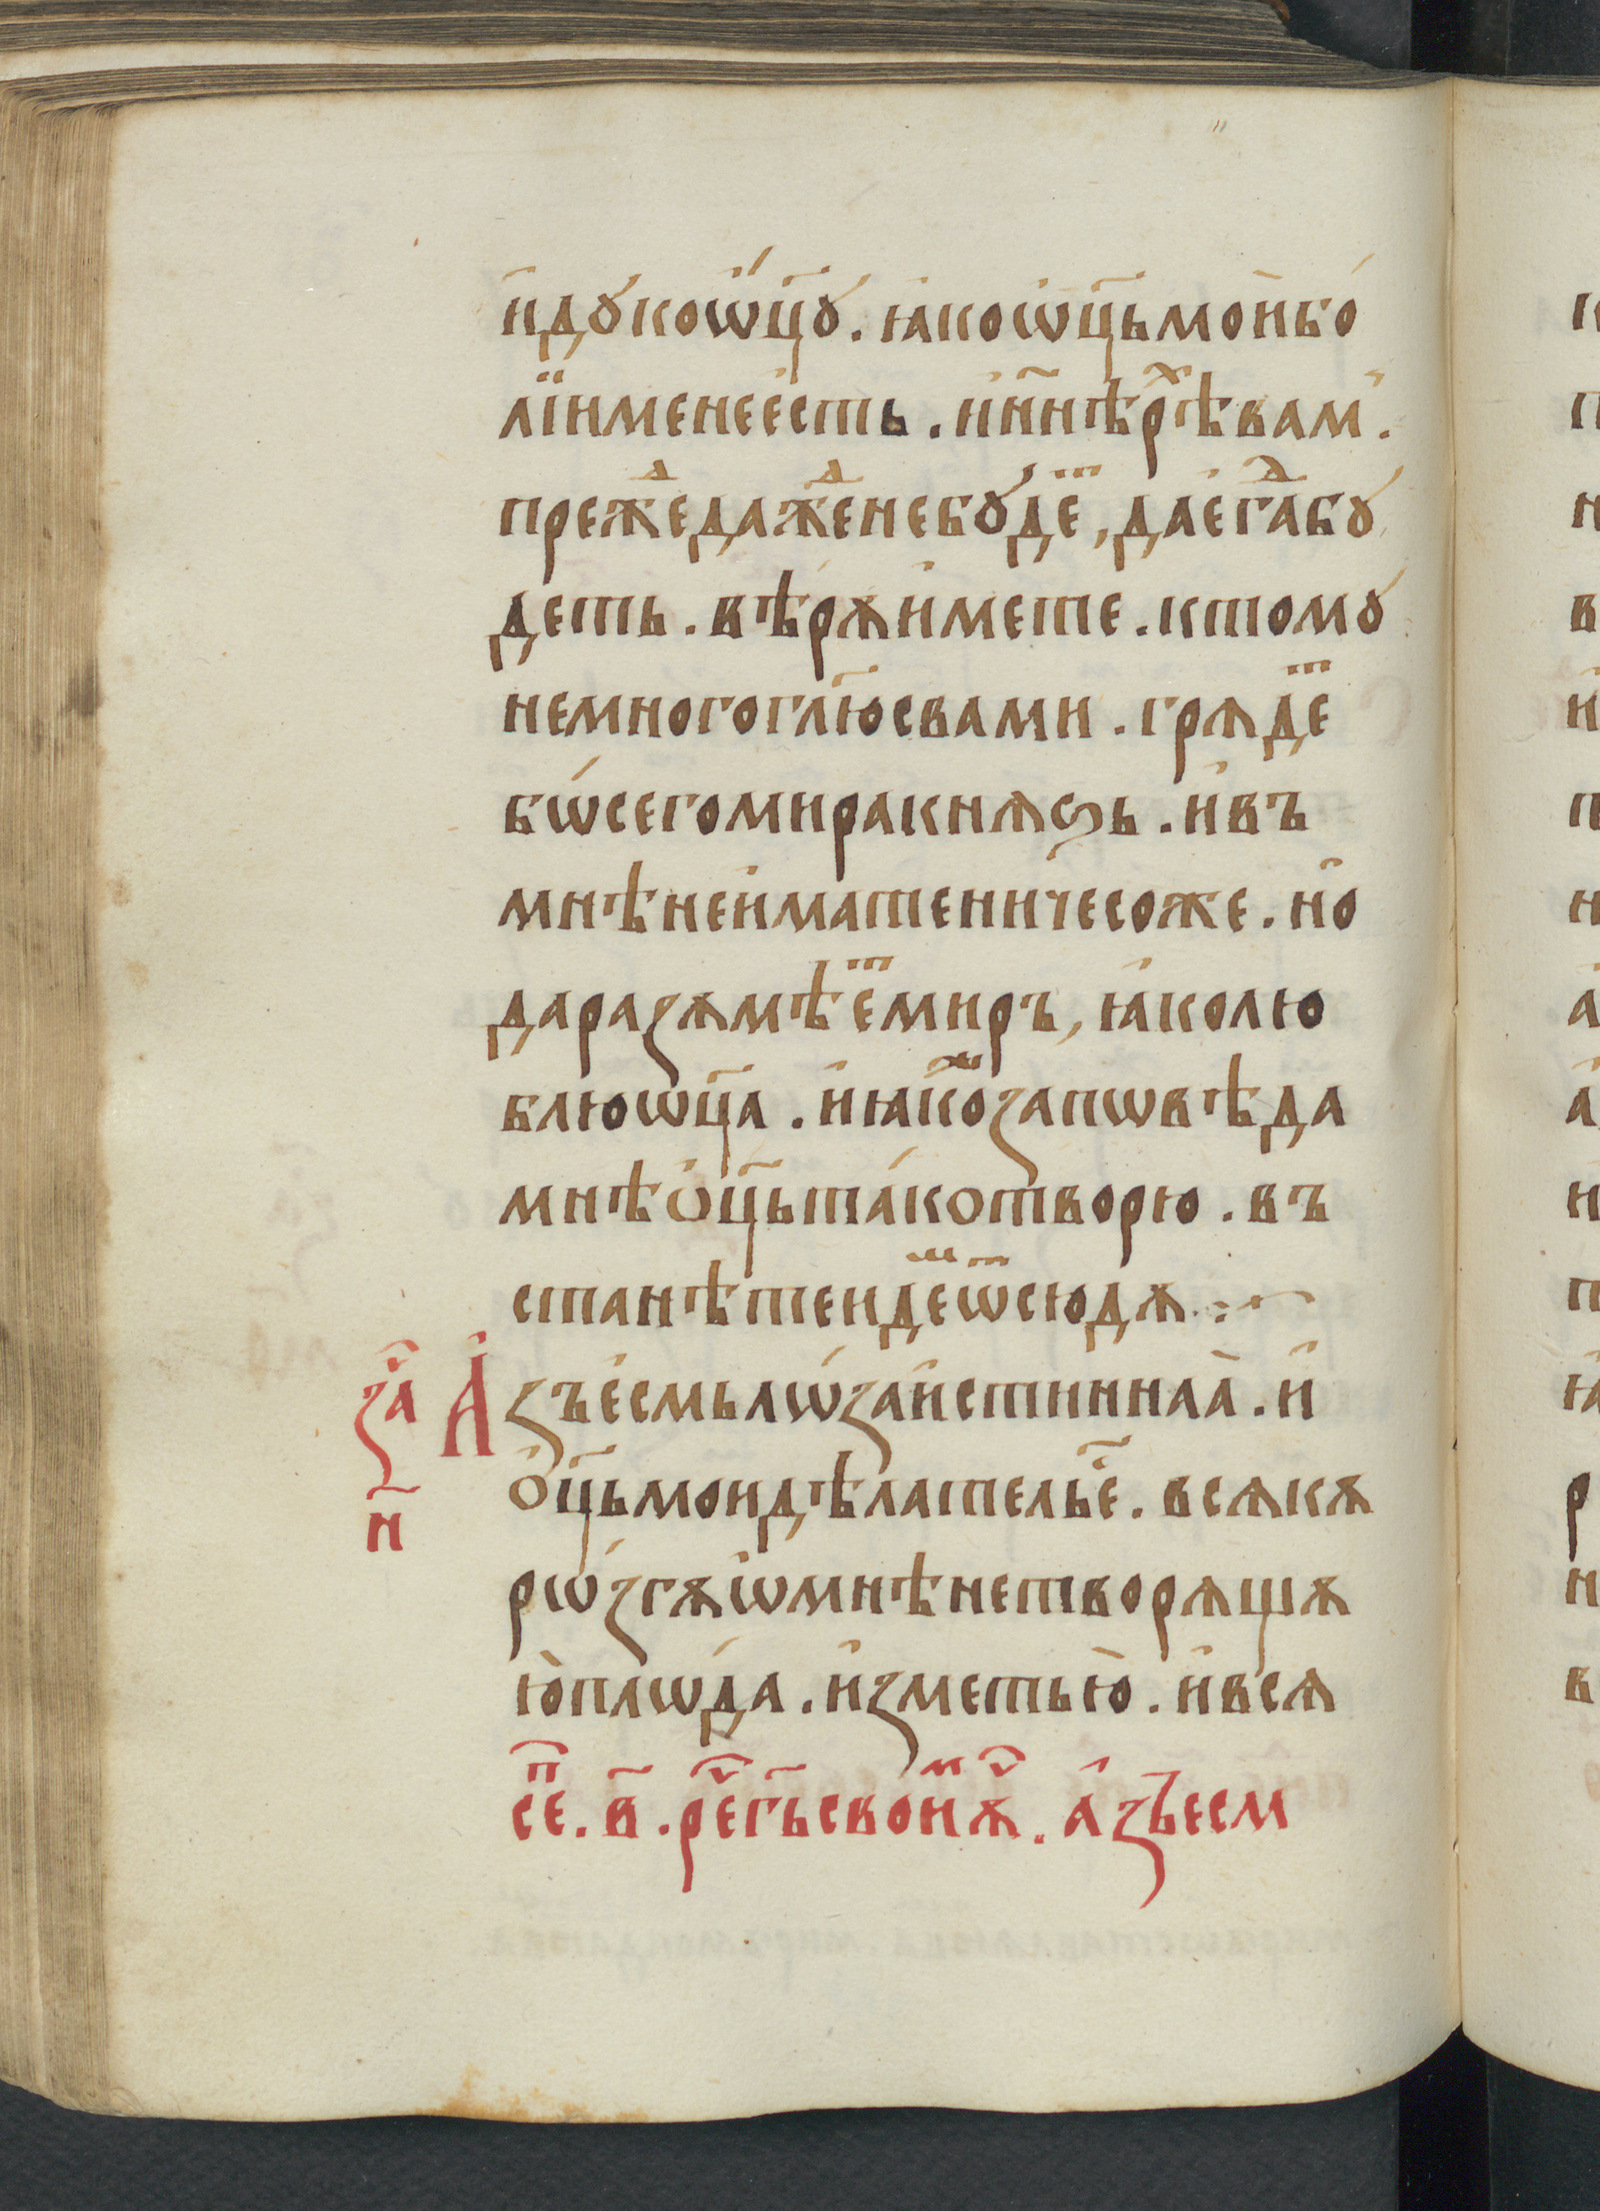 идꙋкоѿц҃ꙋ. ꙗкоѡц҃ьмоибо
лїименеесть. ин҃нѣрⷯѣвам.
прежⷣедажⷣенебꙋдеⷮ, даегдⷶабꙋ
деть. вѣрѫимете. ктомꙋ
немногогл҃юсвами. грѧдеⷮ
бѡсегомиракнѧѕь. ивъ
мнѣнеиматеничесоже. но
даразѫмѣеⷮмиръ, ꙗколю
блюѡц҃а. иꙗкоⷤзапѡвѣда
мнѣоц҃ьтакотворю. въ
станѣтеидеⷨѿсюдѫ
за҃ Азъесмьлѡзаистиннаа. и
оц҃ьмоидѣлательє҃. всѧкѫ
н҃
рѡзгѫѡмнѣнетворѧщѫ
юплѡда. изметью. ивсѧ
сеⷫ. в҃. рече҃гь҃своиⷨѫч҃. азъесм